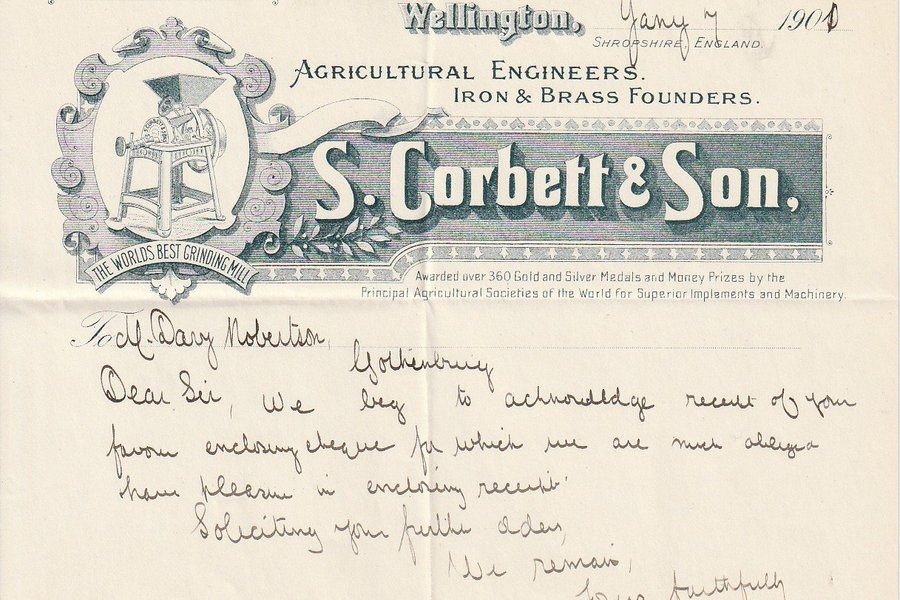 Wellington, Jany 7 1901
SHROPSHIRE, ENGLAND.
AGRICULTURAL ENGINEERS.
IRON & BRASS FOUNDERS.
S. Corbett & Son,
THE WORLDS BEST GRINDING MILL
Awarded over 360 Gold and Silver Medals and Money Prizes by the
Principal Agricultural Societies of the World for Superior Implements and Machinery.
To M. Davy Robertson,
Gothenburg
Dear Sir, We beg to acknowledge receipt of your
favour enclosing cheque for which we are much obliged
have pleasure in enclosing receipt.
Soliciting your further orders,
We remain,
Yours faithfully